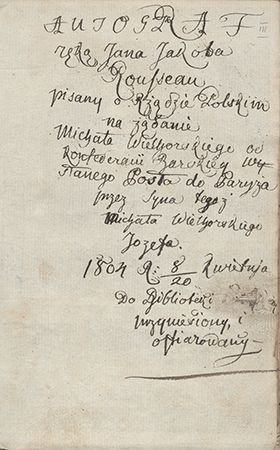 AUTOGRAF
ręką Jana Jakoba
Rousseau
pisany o Rządzie Polskim
na żądanie
Michała Wielhorskiego od
Konfederacii Barskiey wy-
słanego Posła do Paryża
przez Syna tegoż
Michała Wielhorskiego
Jozefa.
1804 R: 8/20 Kwietnia
Do Biblioteki
przyniesiony, i
ofiarowany